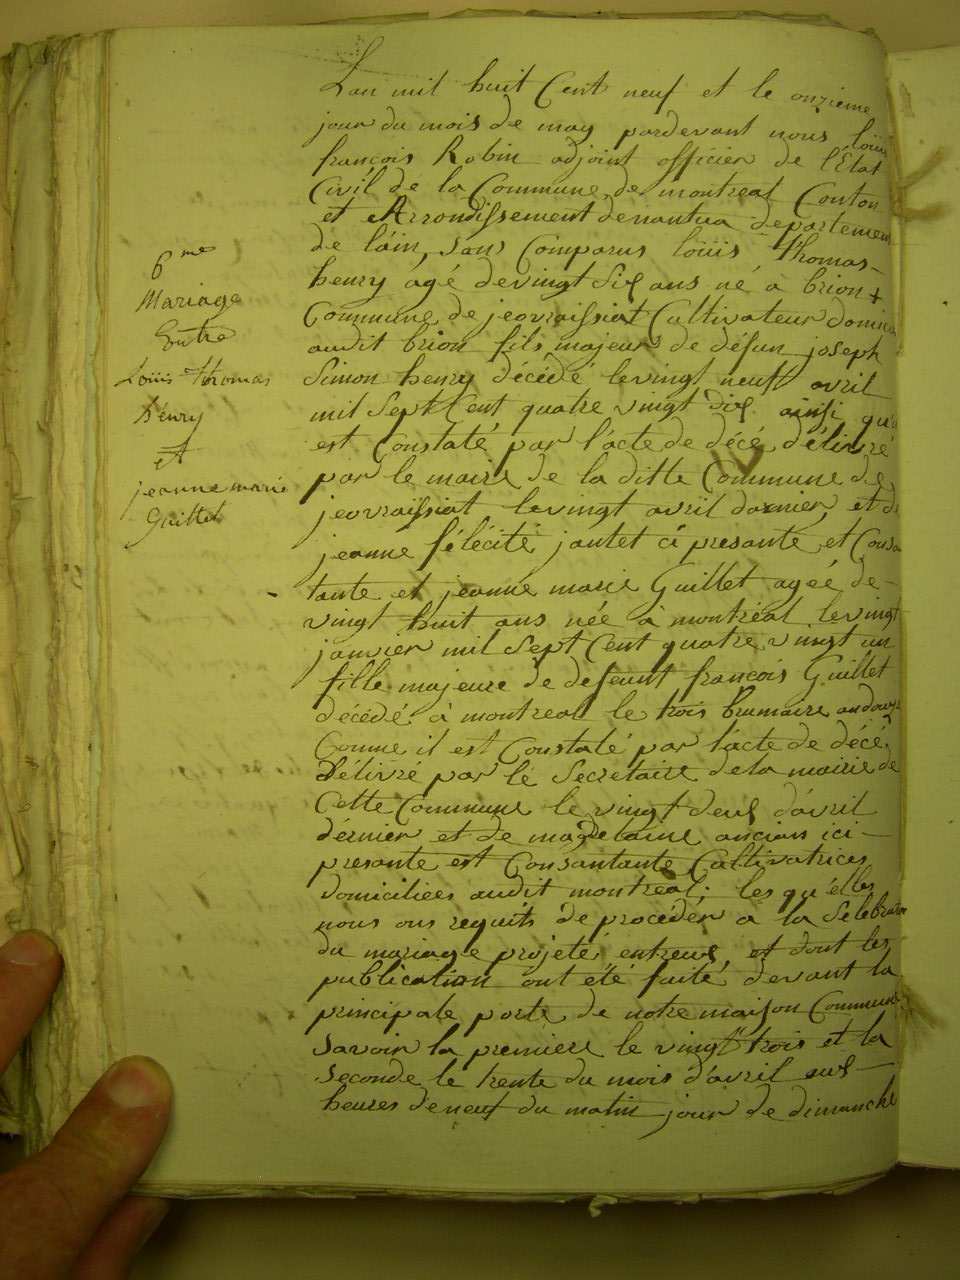 6me
Mariage
Entre
Loüis Thomas
henry
et
jeanne marie
Guillet
Lan mil huit Cent neuf et le onzieme
jour du mois de may pardevant nous loüis
françois Robin adjoint officier de l'Etat
Civil de la Commune de montreal Canton
et Arrondissement denantua departement
de lain, sans Comparus loüis thomas-
henry âgé devingt six ans né a brion +
Commune de jeovraissiat Cultivateur domicil
audit brion fils majeur de défun joseph
Simon henry décédé levingt neuf avril
mil Sept Cent quatre vingt dix ainsi qu'il
est Constaté par l'acte de décé délivré
par le maire de la ditte Commune de
jeovraissiat levingt avril darnier, et de
jeanne félécité jantet ci presante et Consan
tante et jeanne marie Guillet ageé de-
vingt huit ans née à montréal levingt
janvier mil Sept Cent quatre vingt un
fille majeure de defeunt françois Guillet
décédé à montreal le trois brumaire an douze
Comme il est Constaté par l'acte de décé,
délivré par le Secretaire de la mairie de
Cette Commune le vingt deux d'avril
dérnier et de magdelaine ancian ici-
presante est Consantante Cultivatrices
domiciliees audit montreal; les qu'elles
nous ons requits de procéder a la Selebration
du mariage projeté entreux, et dont les
publication ont été faite devant la
principale porte de notre maison Commune
Savoir la premiere le vingt trois et la
seconde le trente du mois d'avril aux-
heures de neuf du matin jour de dimanche